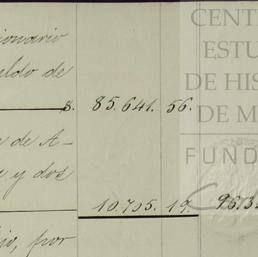 cionario
eldo de
$. 85.641. 56.
e de A-
e y dos
10.705. 19. 96.3
jo, por
CENT
ESTU
DE HIS
DE M
FUND